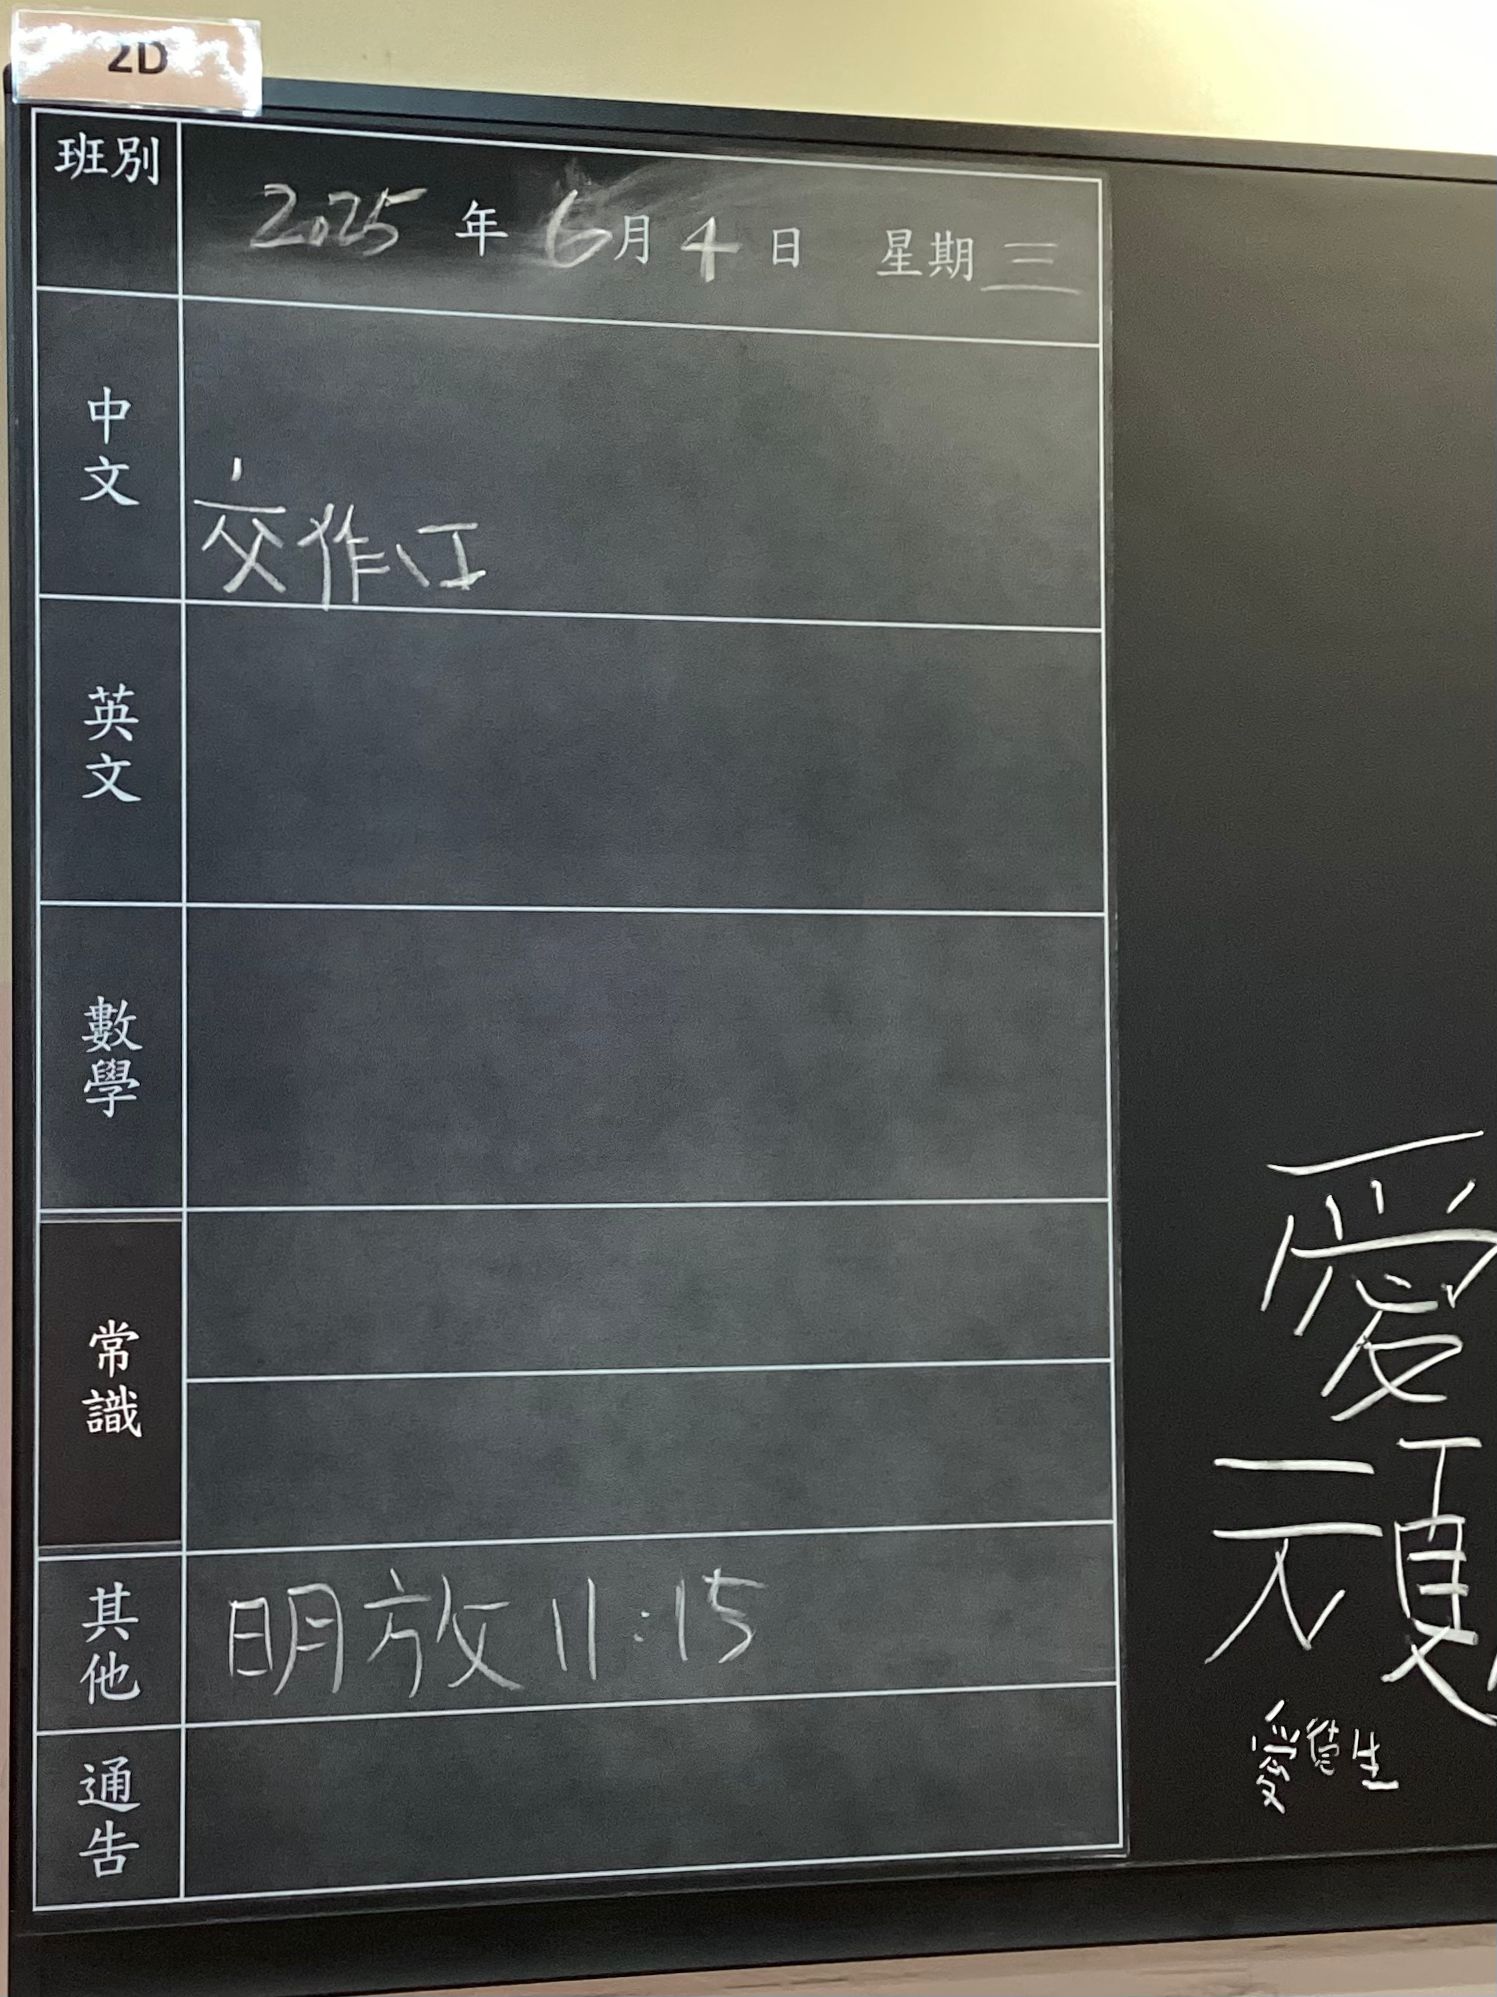 2D
班別
2025 年 6 月 4 日 星期 三
中文
交作
英文
數學
常識
其他
明放 11:15
通告
愛
愛德生